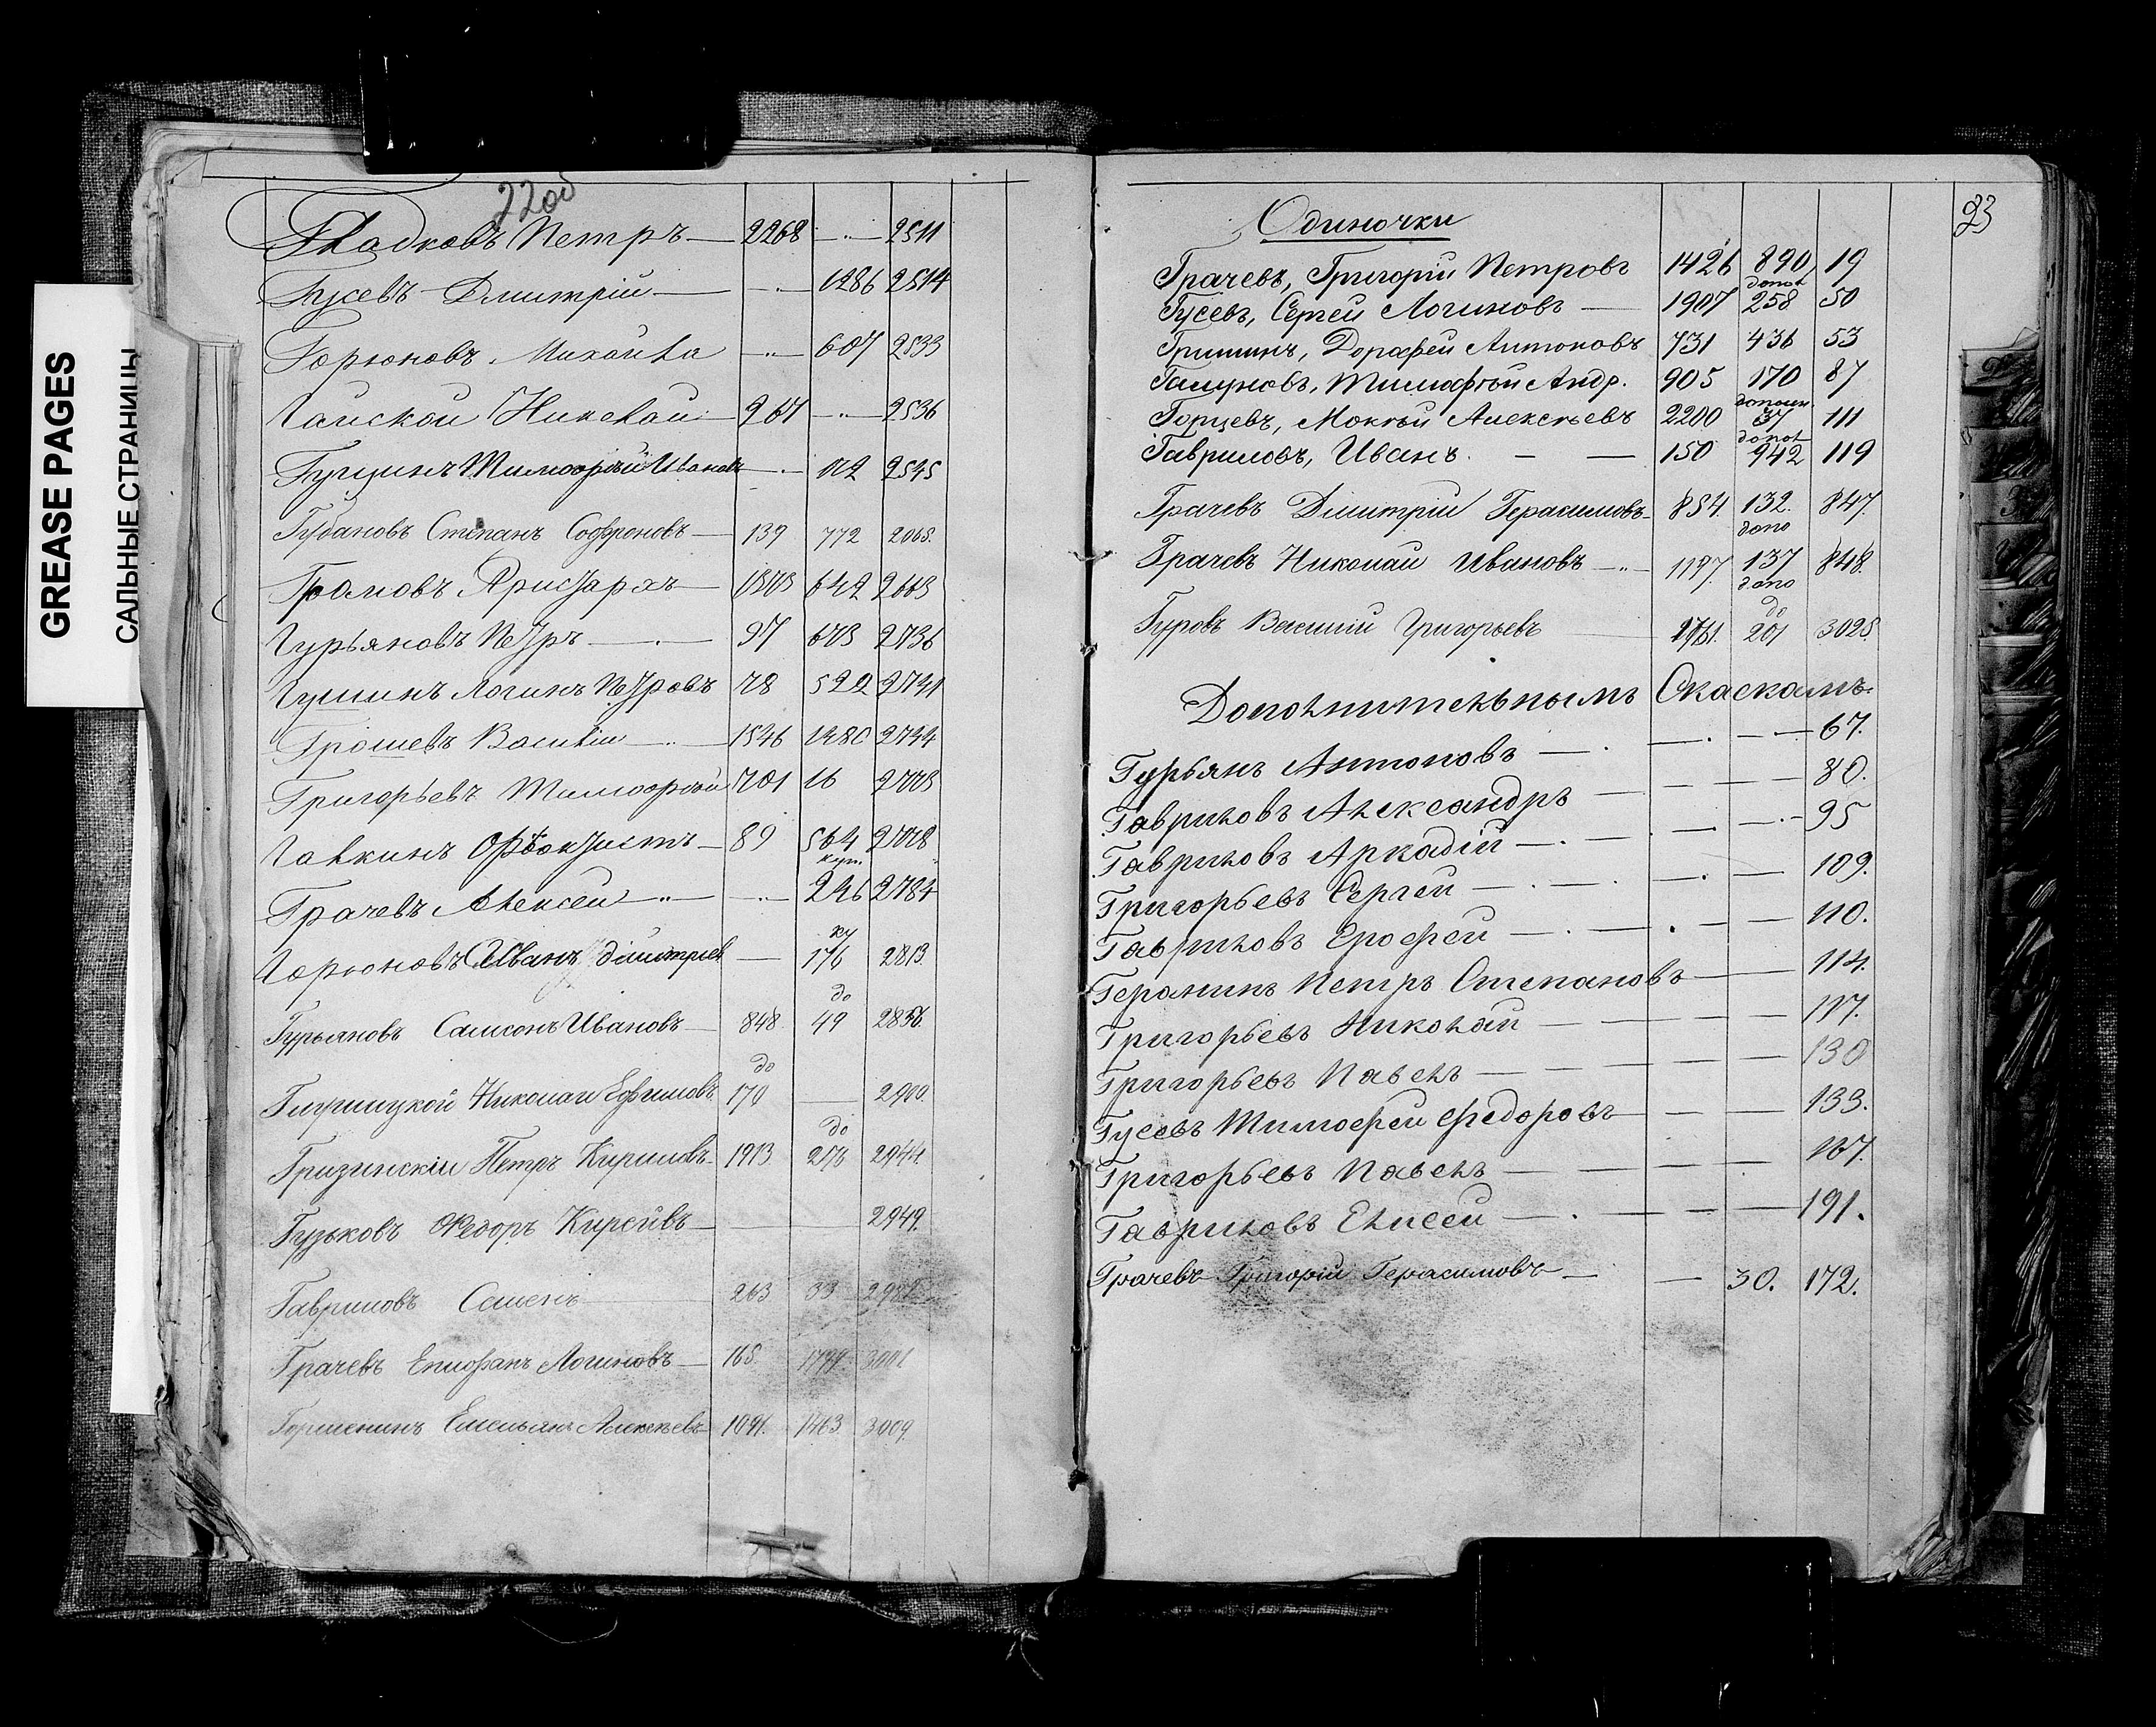 GREASE PAGES
САЛЬНЫЕ СТРАНИЦЫ
22об
Гладковъ Петръ — 2268 — 2511
Гусевъ Дмитрій — — 1286 2514
Горюновъ Михайла — 607 2533
Гайской Николай — 2536
Гущинъ Тимофѣй Ивановъ — 2545
Губановъ Степанъ Софроновъ — 139 772
Громовъ Аристархъ — 642
Гурьяновъ Петръ — 97 673 2736
Гушинъ Логинъ Петровъ 78 522 2741
Грошевъ Василій — 1546 1280 2744
Григорьевъ Тимофѣй 701 16
Галкинъ Ѳеоктистъ — 89 564
куп.
Грачевъ Алексей — — 246 2784
ку
Горюновъ Иванъ Дмитріев — 176 2813.
до
Гурьяновъ Самсонъ Ивановъ — 848 49
до
Николай Ефимовъ 170 — 2900.
до
Грузинскій Петръ Кириловъ — 1913 2944.
Гузьковъ Ѳедоръ — 2949.
Гавриловъ Семенъ 263 33
Грачевъ Епифанъ Логиновъ — 165. 3001
Горшенинъ Емельянъ Алексѣевъ 1463. 3009.
23
Одиночки
Грачевъ, Григорій Петровъ 1426 890 19
допол
Гусевъ, Сергей Логиновъ — 1907 258 50
Гришинъ, Дорафей Антоновъ 731 436 53
Галуновъ, Тимофѣй Андр. 905 170 87
дополн
Горцевъ, Мокѣй Алексѣевъ 2200 37 111
допол
Гавриловъ, Иванъ — — 150 942 119
Грачевъ Дмитрій Герасимовъ 854. 132. 847.
допо
Грачевъ Николай Ивановъ — 1197. 137 848.
допо
до
Гуровъ Василій Григорьевъ 201 3025.
Дополнительнымъ Скаскамъ.
Гурьянъ Антоновъ — 67.
Гавриловъ Александръ — 80.
Гавриловъ Аркадій — 95
Григорьевъ Сергей — 109.
Гавриловъ Ерофей — 110.
Геранинъ Петръ Степановъ — 114.
Григорьевъ Николай — 117.
Григорьевъ Павелъ — 130
Гусевъ Тимофей Федоровъ — 133.
Григорьевъ Павелъ — 167.
Гавриловъ Елисей — 191.
Грачевъ Григорій Герасимовъ — — 30. 172.